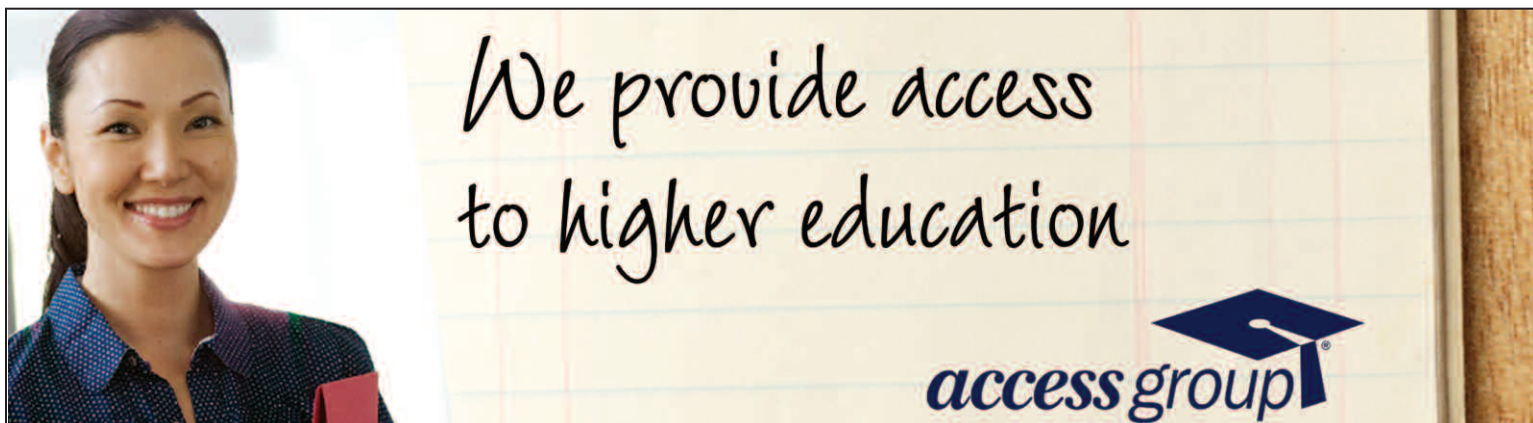 We provide access
to higher education
access group®